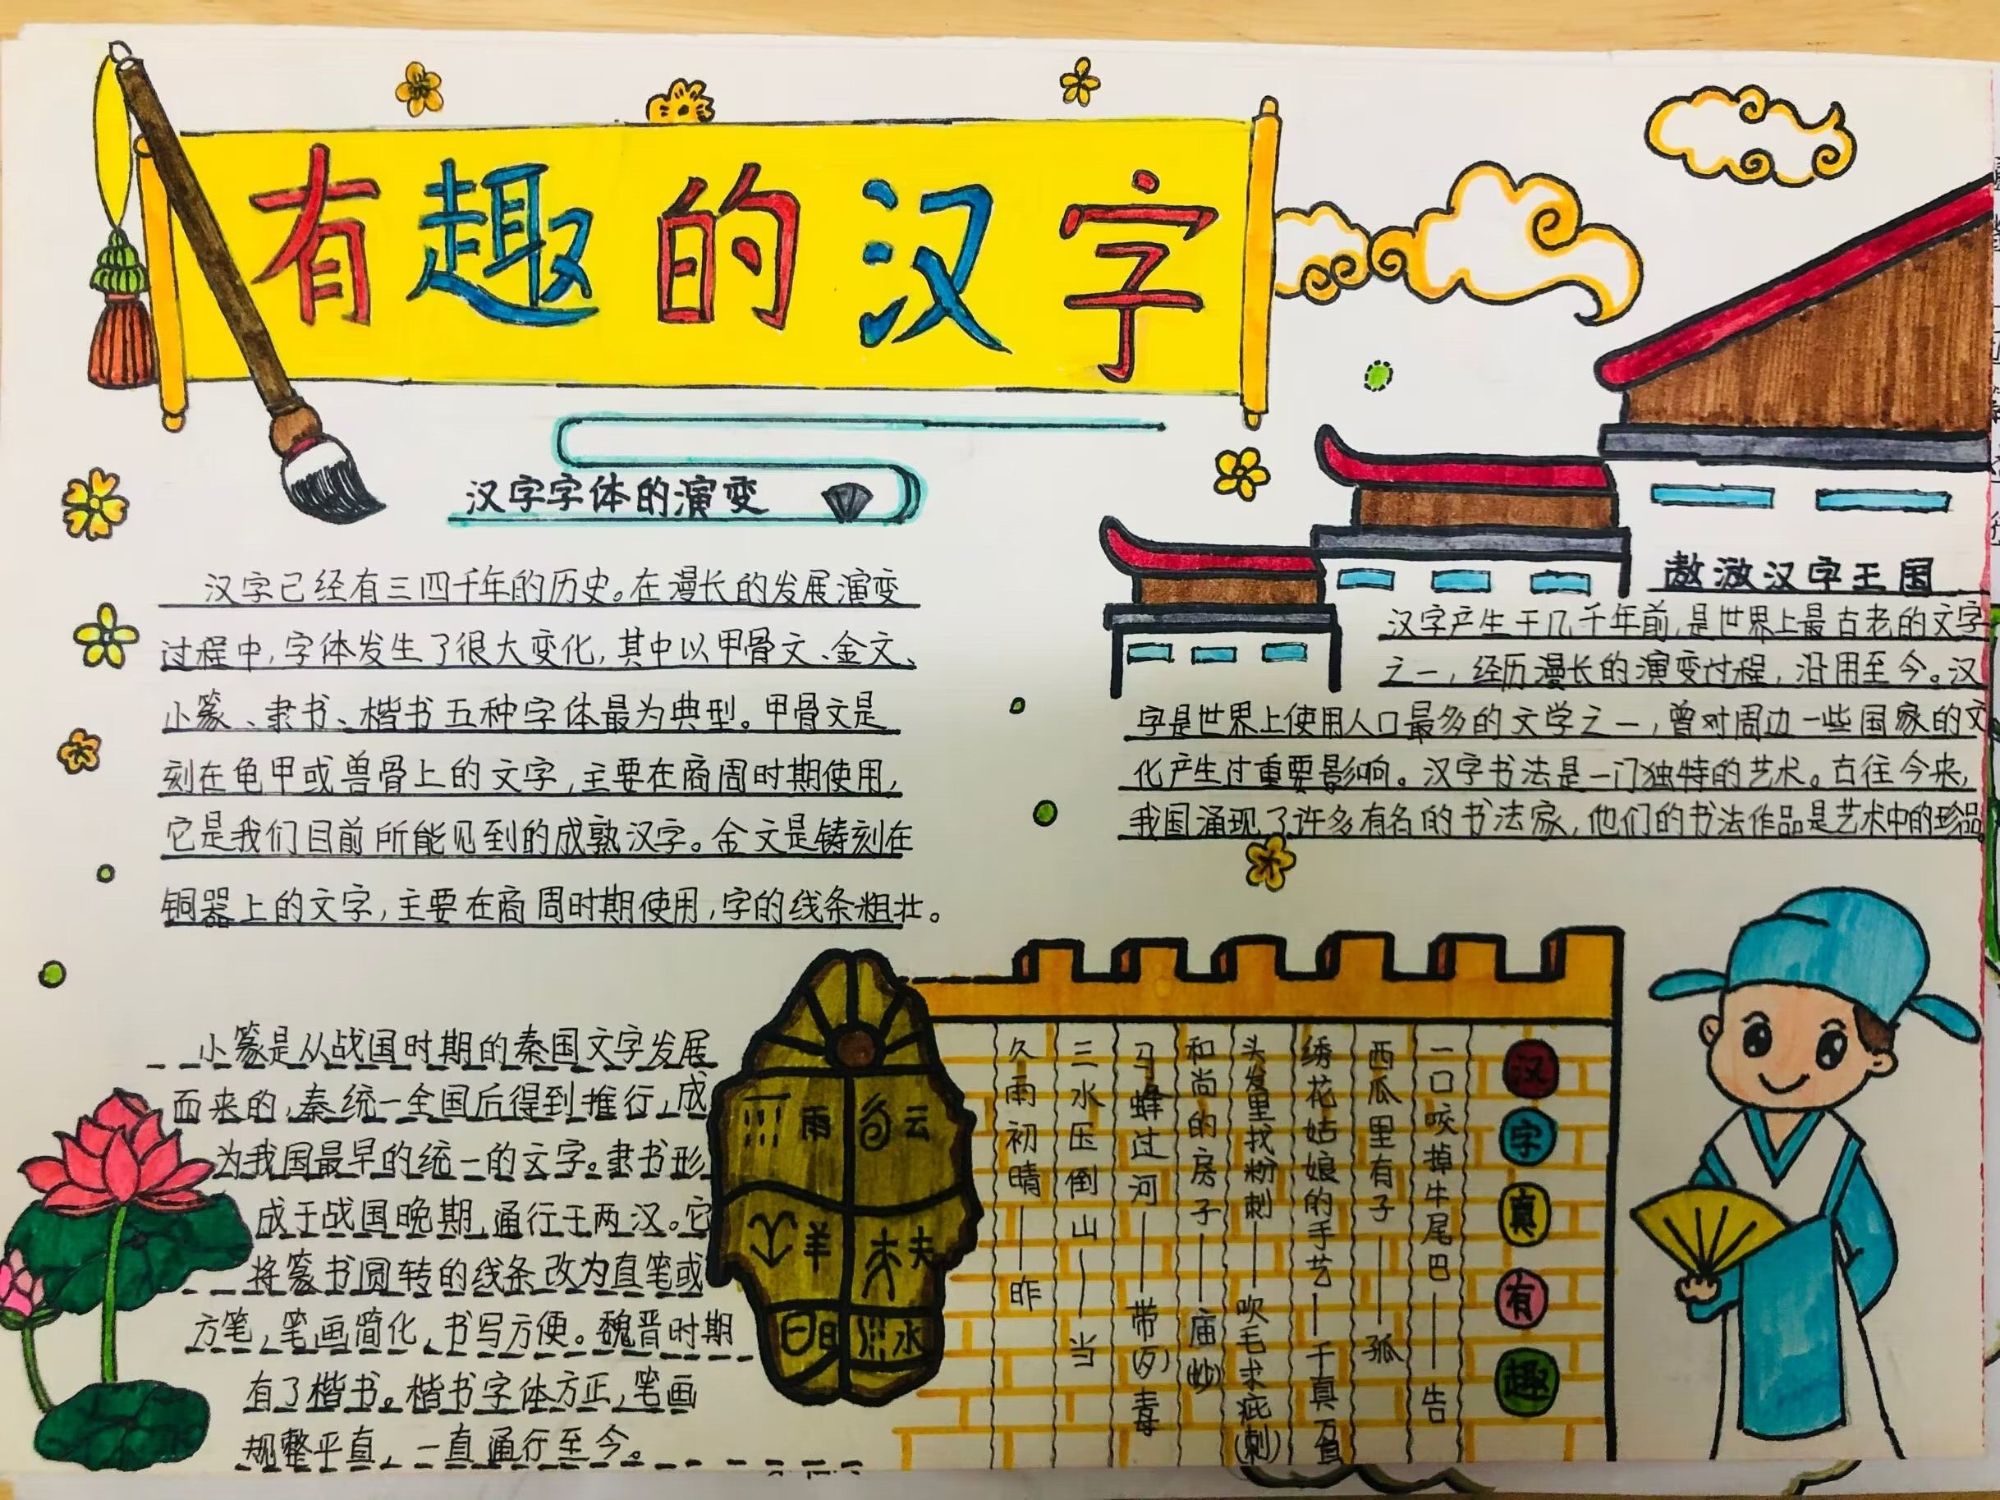 有趣的汉字
汉字字体的演变
汉字已经有三四千年的历史。在漫长的发展演变
过程中,字体发生了很大变化,其中以甲骨文、金文、
小篆、隶书、楷书五种字体最为典型。甲骨文是
刻在龟甲或兽骨上的文字,主要在商周时期使用,
它是我们目前所能见到的成熟汉字。金文是铸刻在
铜器上的文字,主要在商周时期使用,字的线条粗壮。
小篆是从战国时期的秦国文字发展
而来的,秦统一全国后得到推行,成
为我国最早的统一的文字。隶书形
成于战国晚期,通行于两汉。它
将篆书圆转的线条改为直笔或
方笔,笔画简化,书写方便。魏晋时期
有了楷书。楷书字体方正,笔画
规整平直,一直通行至今。
遨游汉字王国
汉字产生于几千年前,是世界上最古老的文字
之一,经历漫长的演变过程,沿用至今。汉
字是世界上使用人口最多的文学之一,曾对周边一些国家的文
化产生过重要影响。汉字书法是一门独特的艺术。古往今来,
我国涌现了许多有名的书法家,他们的书法作品是艺术中的珍品
雨 云
羊 夫
日 水
汉字真有趣
一口咬掉牛尾巴——告
西瓜里有子——孤
绣花姑娘的手艺—千真万真
头发里找粉刺—吹毛求疵(刺)
和尚的房子——庙(妙)
马蜂过河——带(歹)毒
三水压倒山—当
久雨初晴——昨